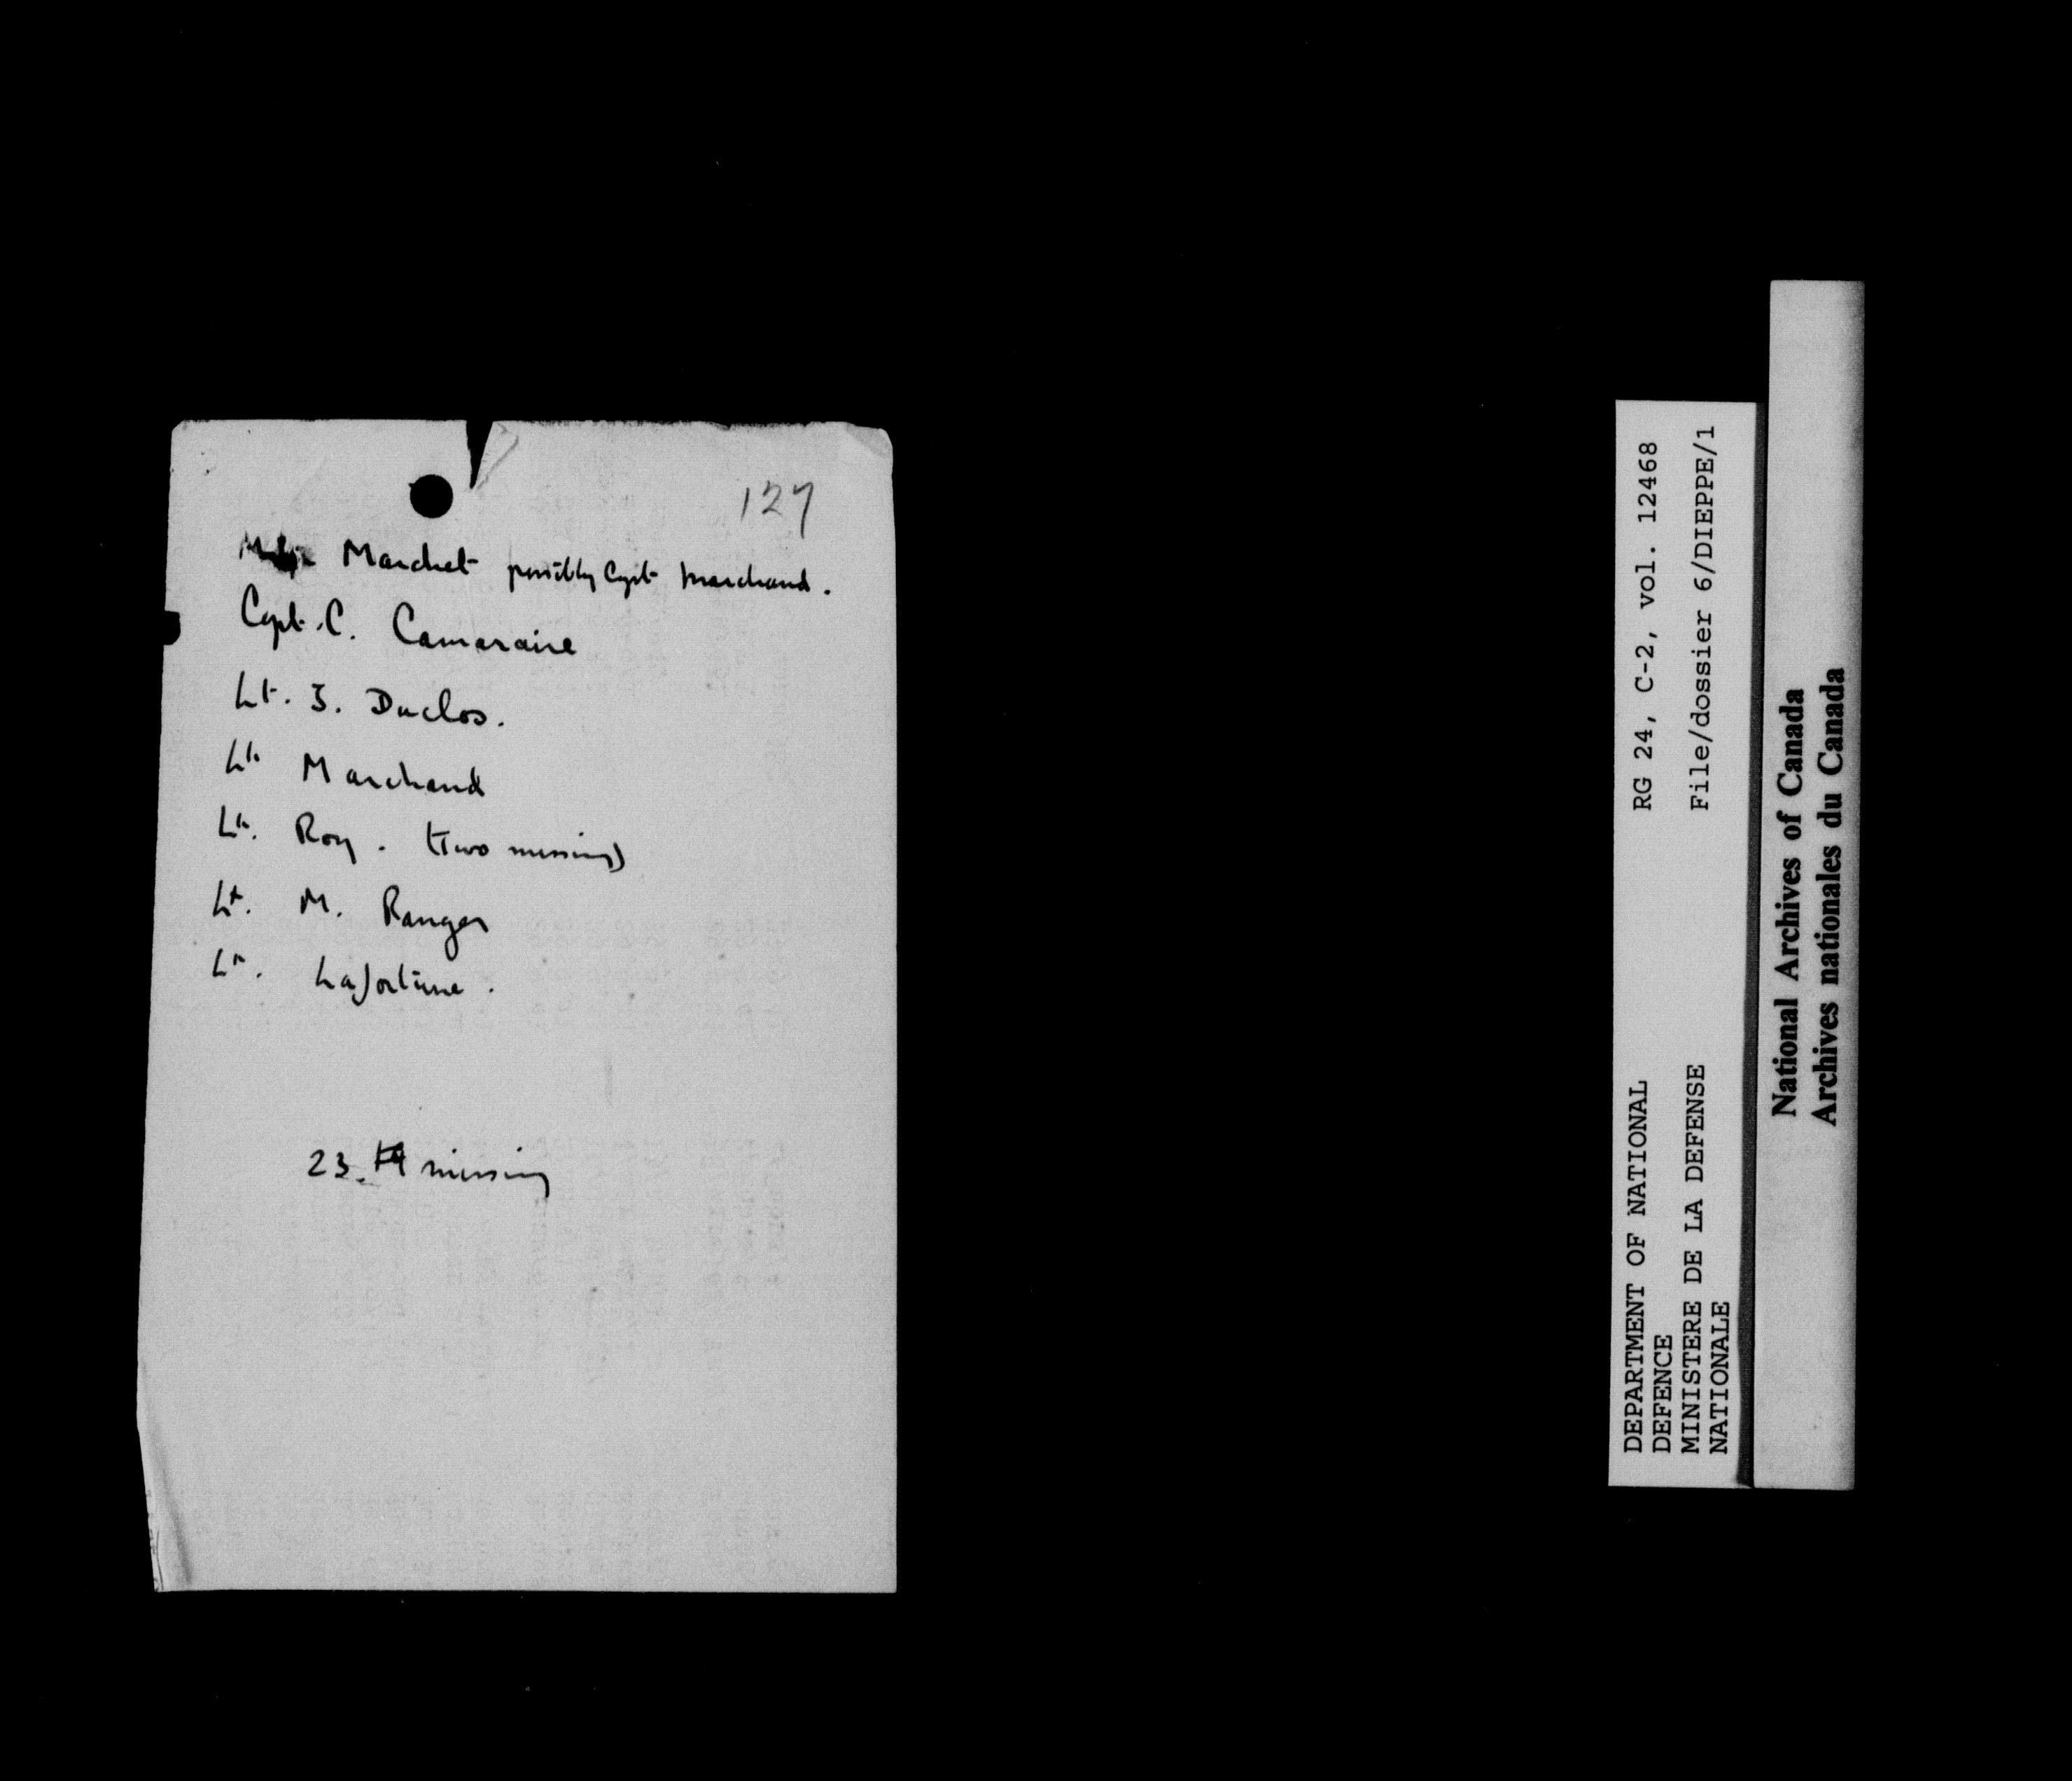 127
Marchet possibly Capt Marchand.
Capt. C. Camaraire
Lt. J. Duclos.
Lt Marchand
Lt. Roy. (two missing)
Lt. M. Ranger
Lt. Lafortune.
23. missing
RG 24, C-2, vol. 12468
File/dossier 6/DIEPPE/1
DEPARTMENT OF NATIONAL
DEFENCE
MINISTERE DE LA DEFENSE
NATIONALE
National Archives of Canada
Archives nationales du Canada